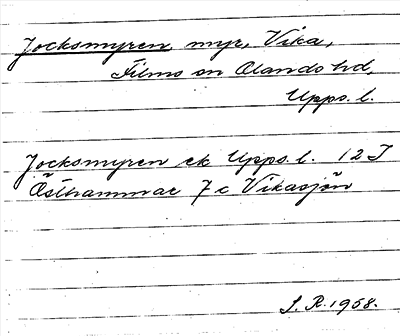 Jocksmyren, myr, Vika,
Films sn Olands hd,
Upps. l.
Jocksmyren ek Upps. l. 12 I
Östhammar 7 c Vikasjön
S. R. 1958.